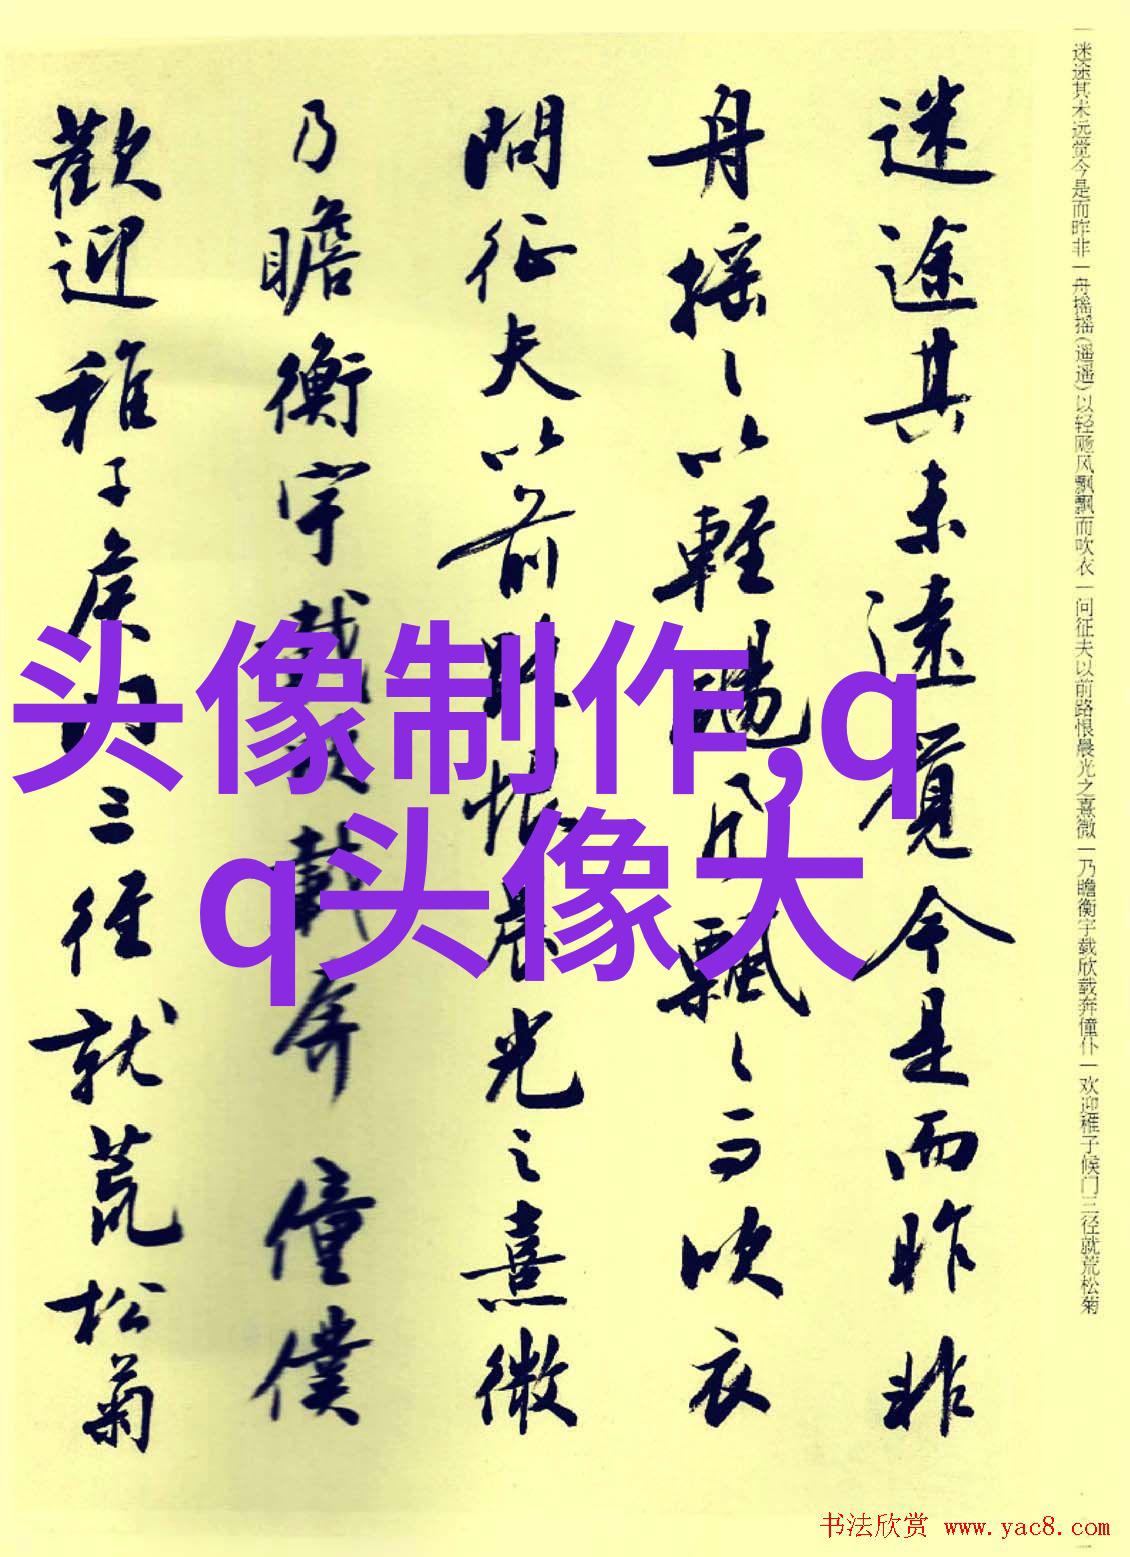 一迷途其未远觉今是而昨非一舟摇摇(遥遥)以轻飏风飘飘而吹衣一问征夫以前路恨晨光之熹微一乃瞻衡宇载欣载奔僮仆一欢迎稚子候门三径就荒松菊
迷途其未遠覺今是而昨非
舟摇〻以輕颺風飄〻而吹衣
問征夫以前路恨晨光之熹微
乃瞻衡宇載欣載奔僮僕
歡迎稚子候門三径就荒松菊
头像制作,q
q头像大
书法欣赏 www.yac8.com